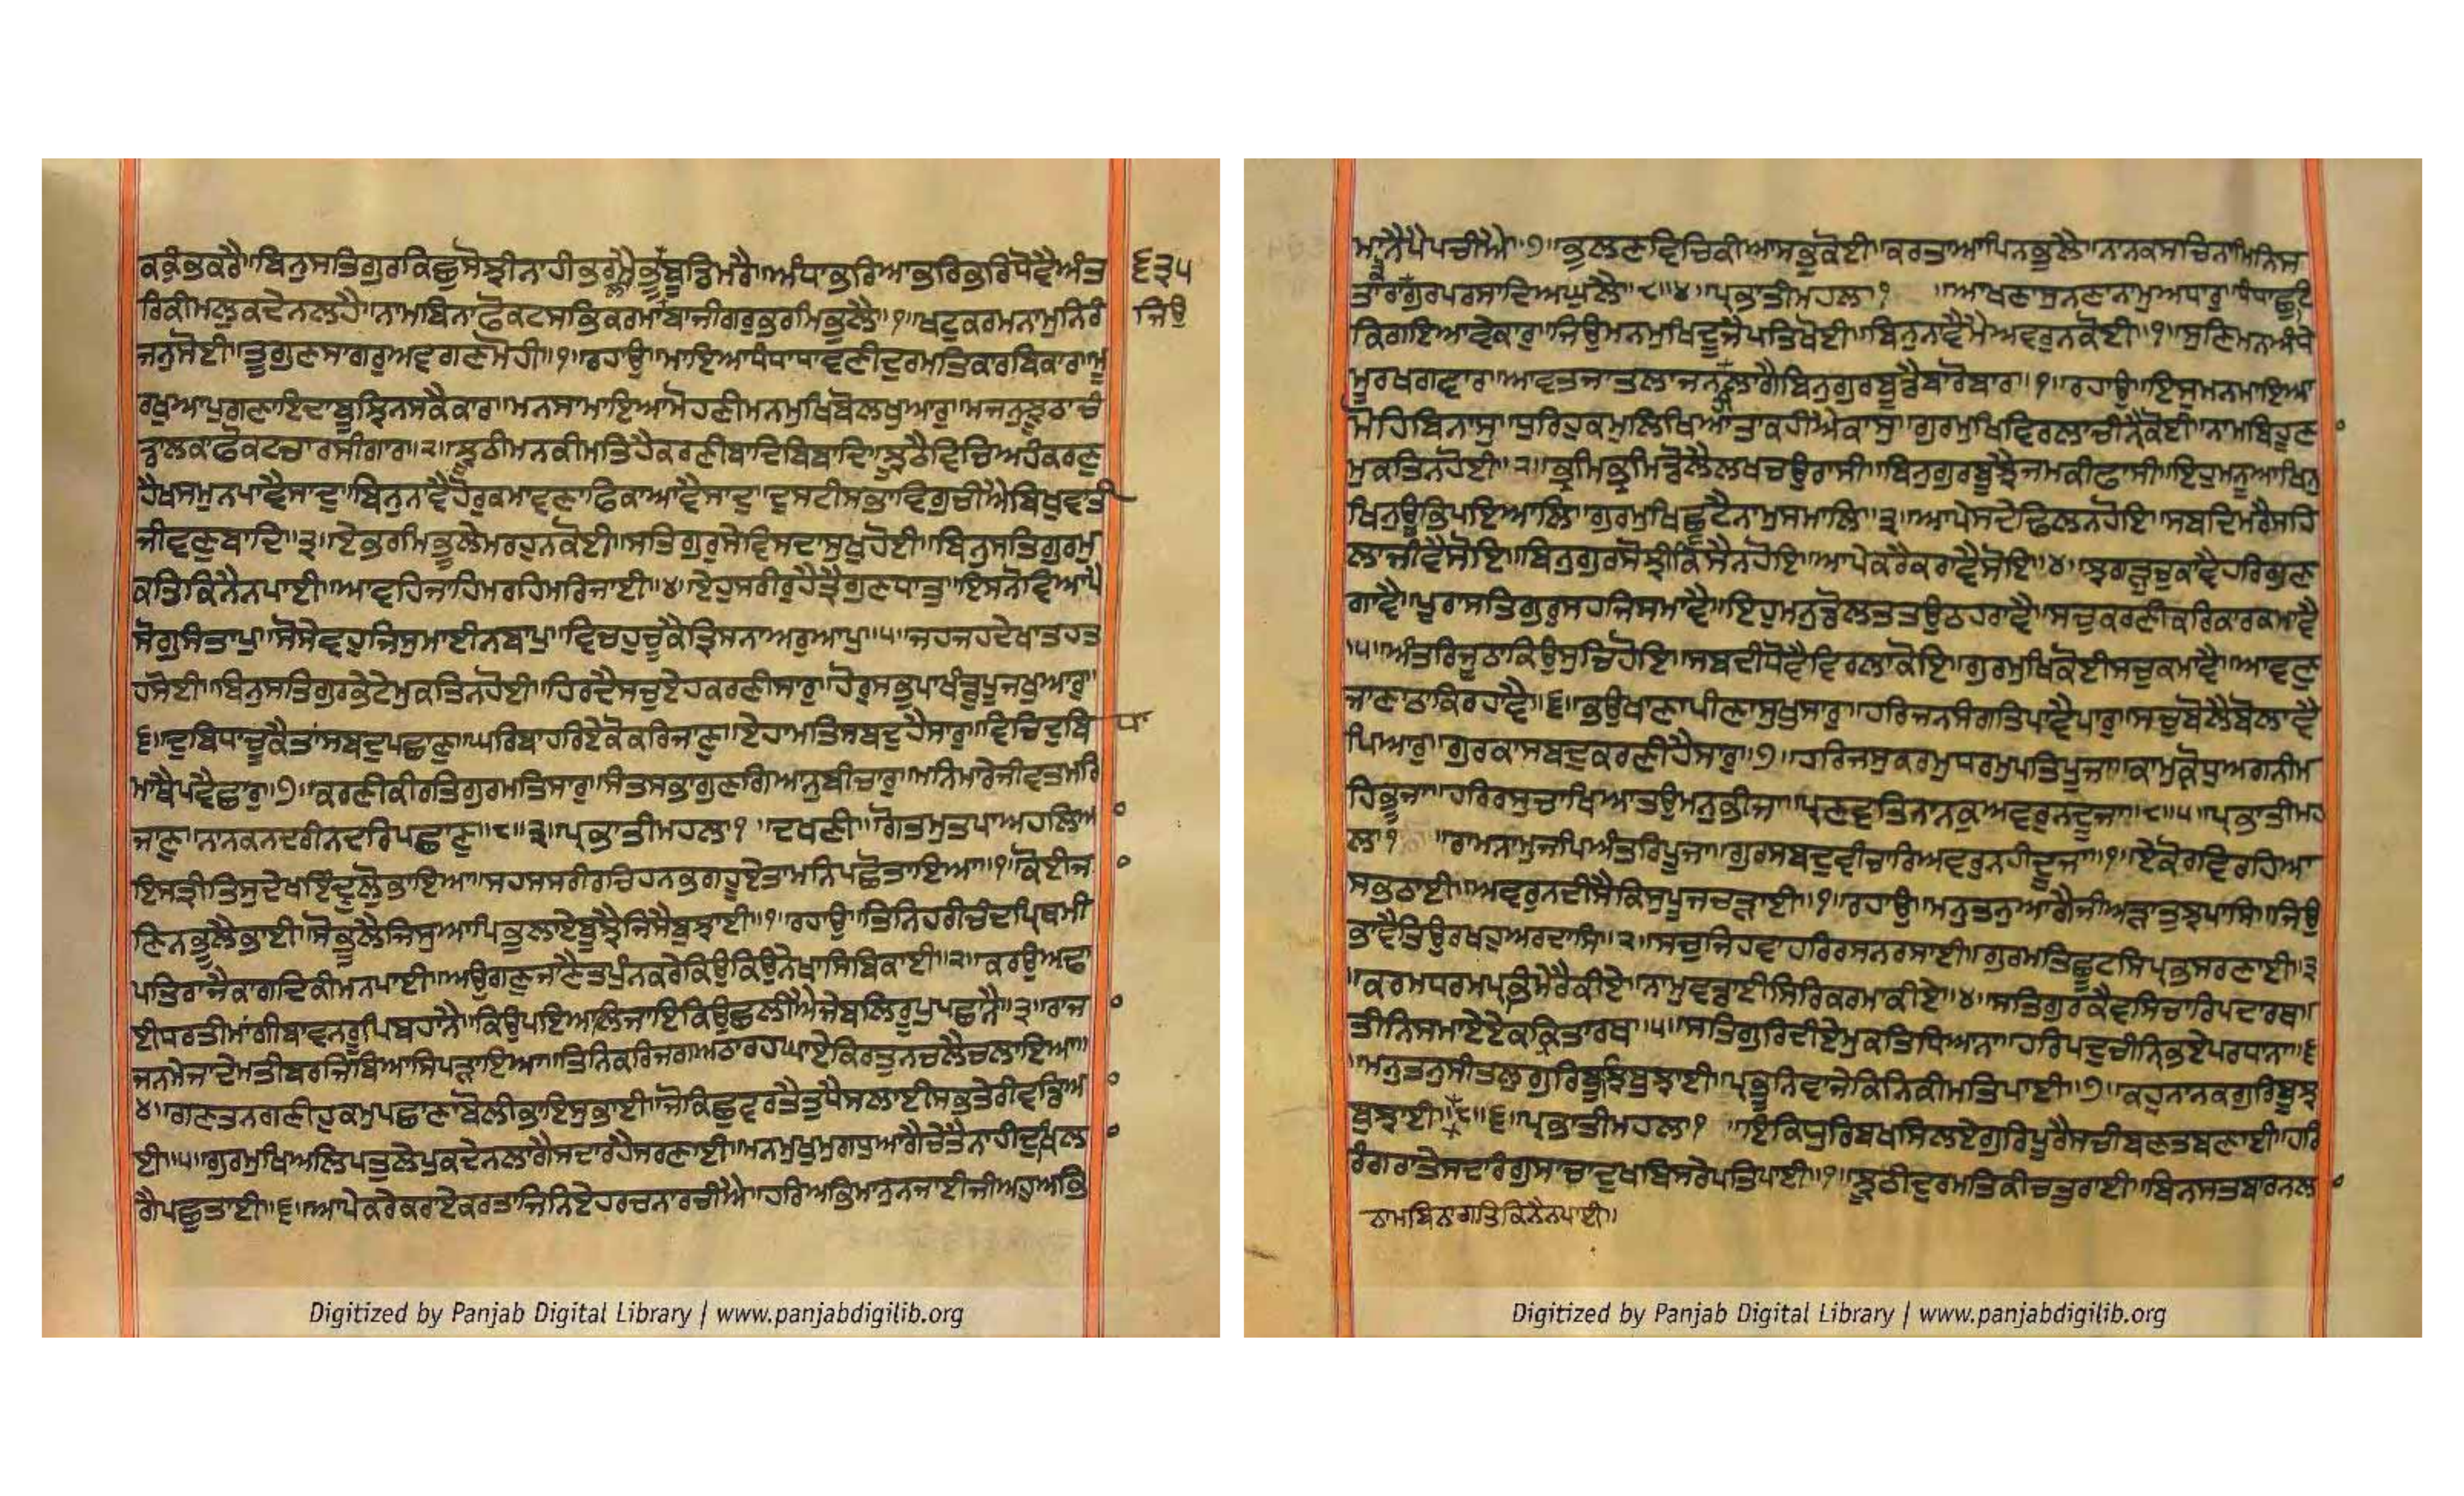 ਕਕੰਭਕਰੈ॥ਬਿਨੁਸਤਿਗੁਰਕਿਛੁਸੋਝੀਨਾਹੀਭਰਮੇਭੂਬੁਡਿਮਰੈ॥ਅੰਧਾਭਰਿਆਭਰਿਭਰਿਧੋਵੈਅੰਤ
ਰਿਕੀਮਲੁਕਦੇਨਲਹੈ॥ਨਾਮਬਿਨਾਫੋਕਟਸਭਿਕਰਮਾਬਾਜੀਗਰੁਭਰਮਿਭੁਲੈ॥੧॥ਖਟੁਕਰਮਨਾਮੁਨਿਰੰ
ਜਨੁਸੋਈ॥ਤੂਗੁਣਸਾਗਰੁਅਵਗਣਮੋਹੀ॥੧॥ਰਹਾਉ॥ਮਾਇਆਧੰਧਾਧਾਵਣੀਦੁਰਮਤਿਕਾਰਬਿਕਾਰ॥ਮੂ
ਰਖੁਆਪੁਗਣਾਇਦਾਬੂਝਿਨਸਕੈਕਾਰ॥ਮਨਸਾਮਾਇਆਮੋਹਣੀਮਨਮੁਖਿਬੋਲਖੁਆਰੁ॥ਮਜਨੁਝੂਠਾਚੰ
ਡਾਲਕਾਫੋਕਟਚਾਰਸੀਗਾਰ॥੨॥ਝੂਠੀਮਨਕੀਮਤਿਹੈਕਰਣੀਬਾਦਿਬਿਬਾਦਿ॥ਝੂਠੈਵਿਚਿਅਹੰਕਰਣੁ
ਹੈਖਸਮੁਨਪਾਵੈਸਾਦੁ॥ਬਿਨੁਨਾਵੈਹੋਰੁਕਮਾਵਣਾਫਿਕਾਆਵੈਸਾਦੁ॥ਦੁਸਟੀਸਭਾਵਿਗੁਚੀਐਬਿਖੁਵਾਤੀ
ਜੀਵਣੁਬਾਦਿ॥੩॥ਏਭਰਮਿਭੂਲੇਮਰਹੁਨਕੋਈ॥ਸਤਿਗੁਰੁਸੇਵਿਸਦਾਸੁਖੁਹੋਈ॥ਬਿਨੁਸਤਿਗੁਰਮੁ
ਕਤਿਕਿਨੈਨਪਾਈ॥ਆਵਹਿਜਾਹਿਮਰਹਿਮਰਿਜਾਈ॥੪॥ਏਹੁਸਰੀਰੁਹੈਤ੍ਰੈਗੁਣਧਾਤੁ॥ਇਸਨੋਵਿਆਪੈ
ਸੋਗੁਸੰਤਾਪੁ॥ਸੋਸੇਵਹੁਜਿਸੁਮਾਈਨਬਾਪੁ॥ਵਿਚਹੁਚੂਕੈਤਿਸਨਾਅਰੁਆਪੁ॥੫॥ਜਹਜਹਦੇਖਾਤਹਤ
ਹਸੋਈ॥ਬਿਨੁਸਤਿਗੁਰਭੇਟੇਮੁਕਤਿਨਹੋਈ॥ਹਿਰਦੈਸਚੁਏਹਕਰਣੀਸਾਰੁ॥ਹੋਰੁਸਭੁਪਾਖੰਡੁਪੂਜਖੁਆਰੁ॥
੬॥ਦੁਬਿਧਾਚੂਕੈਤਾਂਸਬਦੁਪਛਾਣੁ॥ਘਰਿਬਾਹਰਿਏਕੋਕਰਿਜਾਣੁ॥ਏਹਾਮਤਿਸਬਦੁਹੈਸਾਰੁ॥ਵਿਚਿਦੁਬਿ
ਮਾਥੈਪਵੈਛਾਰੁ॥੭॥ਕਰਣੀਕੀਰਤਿਗੁਰਮਤਿਸਾਰੁ॥ਸੰਤਸਭਾਗੁਣਗਿਆਨੁਬੀਚਾਰੁ॥ਮਨਿਮਾਰੇਜੀਵਤਮਰਿ
ਜਾਣੁ॥ਨਾਨਕਨਦਰੀਨਦਰਿਪਛਾਣੁ॥੮॥੩॥ਪ੍ਰਭਾਤੀਮਹਲਾ੧॥ਦਖਣੀ॥ਗੋਤਮੁਤਪਾਅਹਲਿਆ
ਇਸਤ੍ਰੀਤਿਸੁਦੇਖਇੰਦ੍ਰੁਲੋਭਾਇਆ॥ਸਹਸਸਰੀਰਚਿਹਨਭਗਹੂਏਤਾਮਨਿਪਛੋਤਾਇਆ॥੧॥ਕੋਈਜ
ਣਿਨਭੂਲੈਭਾਈ॥ਸੋਭੂਲੈਜਿਸੁਆਪਿਭੁਲਾਏਬੂਝੈਜਿਸੈਬੁਝਾਈ॥੧॥ਰਹਾਉ॥ਤਿਨਿਹਰੀਚੰਦਪ੍ਰਿਥਮੀ
ਪਤਿਰਾਜੈਕਾਗਦਿਕੀਮਨਪਾਈ॥ਅਉਗਣੁਜਾਣੈਤਪੁੰਨਕਰੇਕਿਉਕਿਉਨੇਖਾਸਿਬਿਕਾਈ॥੨॥ਕਰਉਅਢਾ
ਈਧਰਤੀਮਾਂਗੀਬਾਵਨਰੂਪਿਬਹਾਨੈ॥ਕਿਉਪਇਆਲਿਜਾਇਕਿਉਛਲੀਐਜੇਬਲਿਰੂਪੁਪਛਾਨੈ॥੩॥ਰਾਜ
ਜਨਮੇਜਾਦੇਮਤੀਬਰਜਿਬਿਆਸਿਪੜਾਇਆ॥ਤਿਨਿਕਰਿਜਗਅਠਾਰਹਘਾਏਕਿਰਤੁਨਚਲੈਚਲਾਇਆ॥
੪॥ਗਣਤਨਗਣੀਹੁਕਮੁਪਛਾਣਾਬੋਲੀਭਾਇਸੁਭਾਈ॥ਜੋਕਿਛੁਵਰਤੈਤੁਧੈਸਲਾਈਸਭਤੇਰੀਵਡਿਆ
ਈ॥੫॥ਗੁਰਮੁਖਿਅਲਿਪਤੁਲੇਪੁਕਦੇਨਲਾਗੈਸਦਾਰਹੈਸਰਣਾਈ॥ਮਨਮੁਖੁਮੁਗਧੁਆਗੈਚੇਤੈਨਾਹੀਦੁਖਿਲਾ
ਗੈਪਛੁਤਾਈ॥੬॥ਆਪੇਕਰੇਕਰਾਏਕਰਤਾਜਿਨਿਏਹਰਚਨਾਰਚੀਐ॥ਹਰਿਅਭਿਮਾਨੁਨਜਾਈਜੀਅਹੁਅਭਿ
੬੩੫
ਜਿਉ
ਧਾ
ਮਾਨੈਪੈਪਚੀਐ॥੭॥ਭੁਲਣਵਿਚਿਕੀਆਸਭੁਕੋਈ॥ਕਰਤਾਆਪਿਨਭੁਲੈ॥ਨਾਨਕਸਚਿਨਾਮਿਨਿਸ
ਤਾਰਾਗੁਰਪਰਸਾਦਿਅਘੁਲੈ॥੮॥੪॥ਪ੍ਰਭਾਤੀਮਹਲਾ੧॥ਆਖਣਾਸੁਨਣਾਨਾਮੁਅਧਾਰੁ॥ਧੰਧਾਛੁਟ
ਕਿਗਇਆਵੇਕਾਰੁ॥ਜਿਉਮਨਮੁਖਿਦੂਜੈਪਤਿਖੋਈ॥ਬਿਨੁਨਾਵੈਮੈਅਵਰੁਨਕੋਈ॥੧॥ਸੁਣਿਮਨਅੰਧੇ
ਮੂਰਖਗਵਾਰ॥ਆਵਤਜਾਤਲਾਜਨਲਾਗੈਬਿਨੁਗੁਰਬੂਡੈਬਾਰੋਬਾਰ॥੧॥ਰਹਾਉ॥ਇਸੁਮਨਮਾਇਆ
ਮੋਹਿਬਿਨਾਸੁ॥ਧੁਰਿਹੁਕਮੁਲਿਖਿਆਤਾਕਹੀਐਕਾਸੁ॥ਗੁਰਮੁਖਿਵਿਰਲਾਚੀਨੈਕੋਈ॥ਨਾਮਬਿਹੂਣਾ
ਮੁਕਤਿਨਹੋਈ॥੨॥ਭ੍ਰਮਿਭ੍ਰਮਿਡੋਲੈਲਖਚਉਰਾਸੀ॥ਬਿਨੁਗੁਰਬੂਝੈਜਮਕੀਫਾਸੀ॥ਇਹੁਮਨੂਆਖਿਨੁ
ਖਿਨੁਊਭਿਪਇਆਲਿ॥ਗੁਰਮੁਖਿਛੂਟੈਨਾਮੁਸਮਾਲਿ॥੩॥ਆਪੇਸਦੇਢਿਲਨਹੋਇ॥ਸਬਦਿਮਰੈਸਹਿ
ਲਾਜੀਵੈਸੋਇ॥ਬਿਨੁਗੁਰਸੋਝੀਕਿਸੈਨਹੋਇ॥ਆਪੇਕਰੈਕਰਾਵੈਸੋਇ॥੪॥ਝਗੜੁਚੁਕਾਵੈਹਰਿਗੁਣ
ਗਾਵੈ॥ਪੂਰਾਸਤਿਗੁਰੁਸਹਜਿਸਮਾਵੈ॥ਇਹੁਮਨੁਡੋਲਤਤਉਠਹਰਾਵੈ॥ਸਚੁਕਰਣੀਕਰਿਕਾਰਕਮਾਵੈ
॥੫॥ਅੰਤਰਿਜੂਠਾਕਿਉਸੁਚਿਹੋਇ॥ਸਬਦੀਧੋਵੈਵਿਰਲਾਕੋਇ॥ਗੁਰਮੁਖਿਕੋਈਸਚੁਕਮਾਵੈ॥ਆਵਣੁ
ਜਾਣਾਠਾਕਿਰਹਾਵੈ॥੬॥ਭਉਖਾਣਾਪੀਣਾਸੁਖੁਸਾਰੁ॥ਹਰਿਜਨਸੰਗਤਿਪਾਵੈਪਾਰੁ॥ਸਚੁਬੋਲੈਬੋਲਾਵੈ
ਪਿਆਰੁ॥ਗੁਰਕਾਸਬਦੁਕਰਣੀਹੈਸਾਰੁ॥੭॥ਹਰਿਜਸੁਕਰਮੁਧਰਮੁਪਤਿਪੂਜਾ॥ਕਾਮੁਕ੍ਰੋਧੁਅਗਨੀਮ
ਹਿਭੂਜਾ॥ਹਰਿਰਸੁਚਾਖਿਆਤਉਮਨੁਭੀਜਾ॥ਪ੍ਰਣਵਤਿਨਾਨਕੁਅਵਰੁਨਦੂਜਾ॥੮॥੫॥ਪ੍ਰਭਾਤੀਮਹ
ਲਾ੧॥ਰਾਮਨਾਮੁਜਪਿਅੰਤਰਿਪੂਜਾ॥ਗੁਰਸਬਦੁਵੀਚਾਰਿਅਵਰੁਨਹੀਦੂਜਾ॥੧॥ਏਕੋਰਵਿਰਹਿਆ
ਸਭਠਾਈ॥ਅਵਰੁਨਦੀਸੈਕਿਸੁਪੂਜਚੜਾਈ॥੧॥ਰਹਾਉ॥ਮਨੁਤਨੁਆਗੈਜੀਅੜਾਤੁਝਪਾਸਿ॥ਜਿਉ
ਭਾਵੈਤਿਉਰਖਹੁਅਰਦਾਸਿ॥੨॥ਸਚੁਜਿਹਵਾਹਰਿਰਸਨਰਸਾਈ॥ਗੁਰਮਤਿਛੂਟਸਿਪ੍ਰਭਸਰਣਾਈ॥੩
॥ਕਰਮਧਰਮਪ੍ਰਭਿਮੇਰੈਕੀਏ॥ਨਾਮੁਵਡਾਈਸਿਰਿਕਰਮਾਕੀਏ॥੪॥ਸਤਿਗੁਰਕੈਵਸਿਚਾਰਿਪਦਾਰਥ॥
ਤੀਨਿਸਮਾਏਏਕਕ੍ਰਿਤਾਰਥ॥੫॥ਸਤਿਗੁਰਿਦੀਏਮੁਕਤਿਧਿਆਨਾ॥ਹਰਿਪਦੁਚੀਨਿਭਏਪਰਧਾਨਾ॥੬
॥ਮਨੁਤਨੁਸੀਤਲੁਗੁਰਿਬੂਝਬੁਝਾਈ॥ਪ੍ਰਭੁਨਿਵਾਜੇਕਿਨਿਕੀਮਤਿਪਾਈ॥੭॥ਕਹੁਨਾਨਕਗੁਰਿਬੂਝ
ਬੁਝਾਈ॥੮॥੬॥ਪ੍ਰਭਾਤੀਮਹਲਾ੧॥ਇਕਿਧੁਰਿਬਖਸਿਲਏਗੁਰਿਪੂਰੈਸਚੀਬਣਤਬਣਾਈ॥ਹਰਿ
ਰੰਗਰਾਤੇਸਦਾਰੰਗੁਸਾਚਾਦੁਖਬਿਸਰੇਪਤਿਪਾਈ॥੧॥ਝੂਠੀਦੁਰਮਤਿਕੀਚਤੁਰਾਈ॥ਬਿਨਸਤਬਾਰਨਲਾ
ਨਾਮਬਿਨਾਗਤਿਕਿਨੈਨਪਾਈ॥
Digitized by Panjab Digital Library | www.panjabdigilib.org
Digitized by Panjab Digital Library | www.panjabdigilib.org